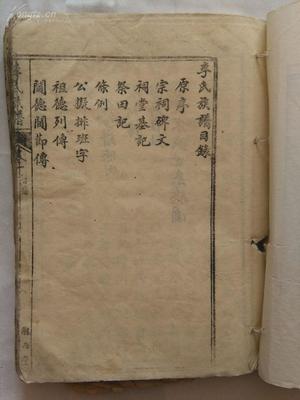 李氏族譜目錄
原序
宗祠碑文
祠堂基記
祭田記
條例
公擬排班字
祖德列傳
閫德閫節傳